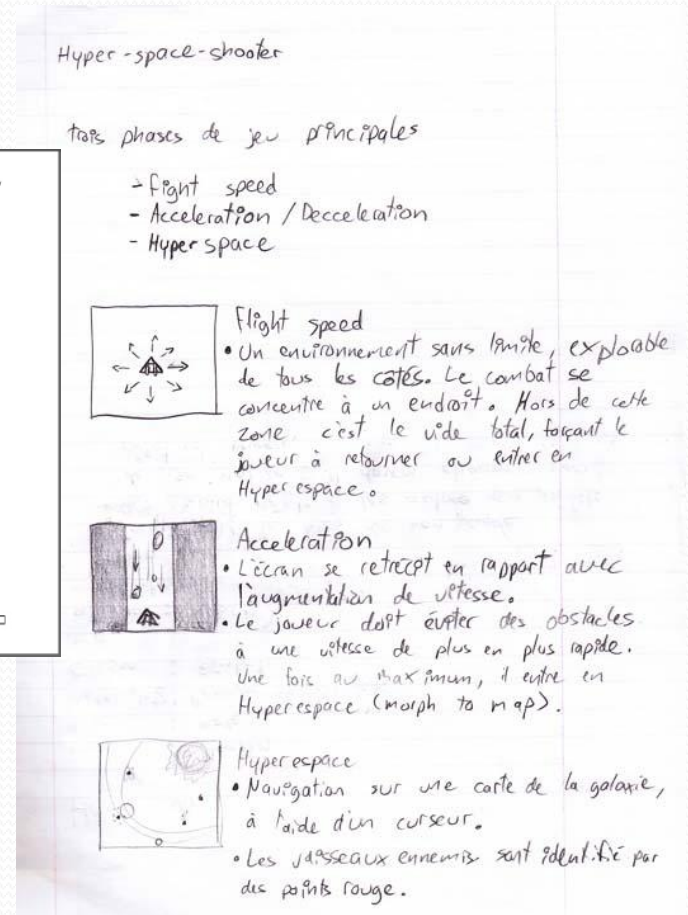 Hyper-space-shooter
trois phases de jeu principales
- Fight speed
- Acceleration / Decceleration
- Hyper space
Flight speed
• Un environnement sans limite, explorable
de tous les cotés. Le combat se
concentre à un endroit. Hors de cette
zone c'est le vide total, forçant le
joueur à retourner ou entrer en
Hyper espace.
Acceleration
• L'écran se retrecit en rapport avec
l'augmentation de vitesse.
• Le joueur doit éviter des obstacles
à une vitesse de plus en plus rapide.
Une fois au maximum, il entre en
Hyperespace (morph to map).
Hyper espace
• Navigation sur une carte de la galaxie,
à l'aide d'un curseur.
• Les vaisseaux ennemis sont identifié par
des points rouge.